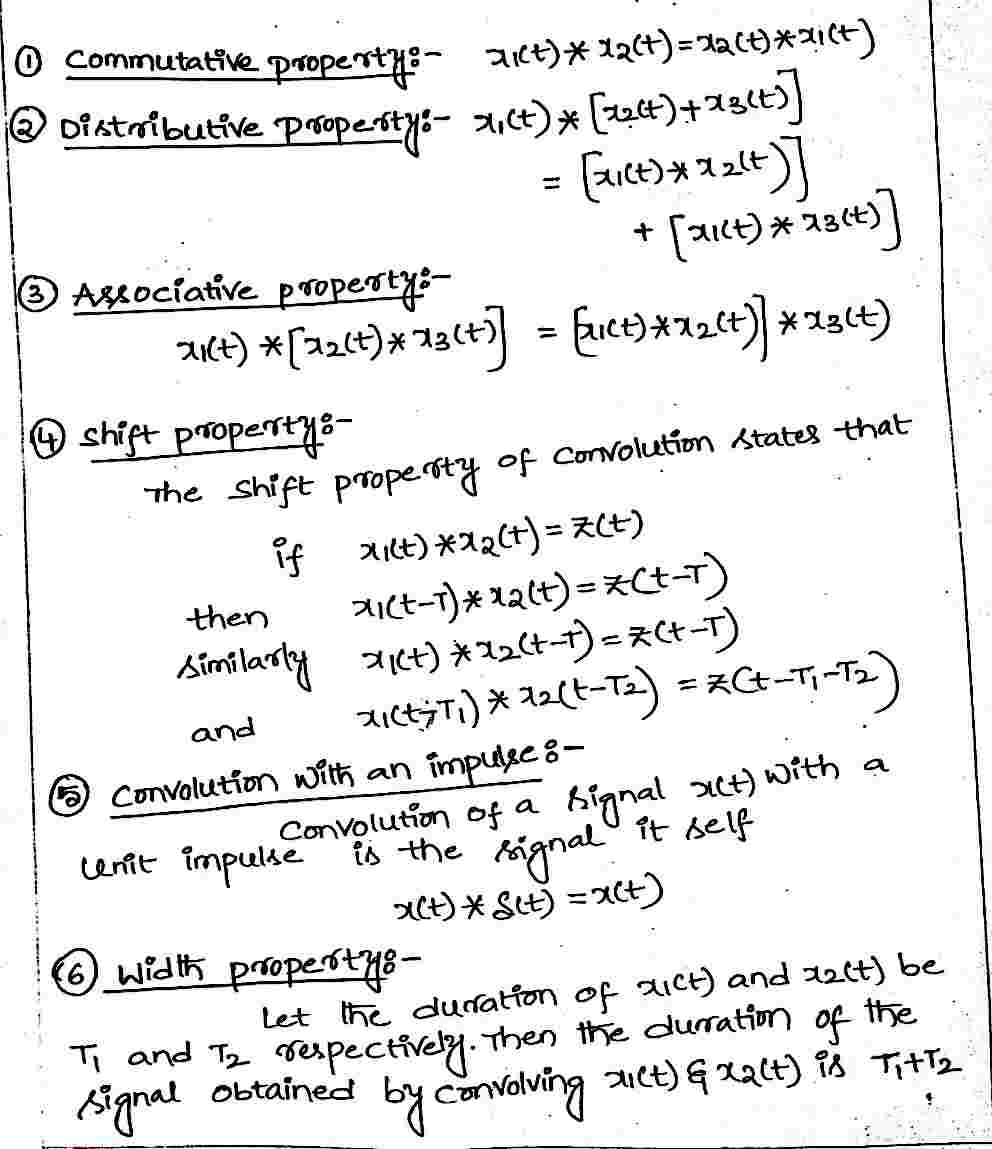 ① Commutative property:- x1(t) * x2(t) = x2(t) * x1(t)
② Distributive property:- x1(t) * [x2(t) + x3(t)]
= [x1(t) * x2(t)]
+ [x1(t) * x3(t)]
③ Associative property:-
x1(t) * [x2(t) * x3(t)] = [x1(t) * x2(t)] * x3(t)
④ Shift property:-
The shift property of convolution states that
if x1(t) * x2(t) = z(t)
then x1(t-T) * x2(t) = z(t-T)
similarly x1(t) * x2(t-T) = z(t-T)
and x1(t-T1) * x2(t-T2) = z(t-T1-T2)
⑤ Convolution with an impulse:-
Convolution of a signal x(t) with a
unit impulse is the signal it self
x(t) * δ(t) = x(t)
⑥ Width property:-
Let the duration of x1(t) and x2(t) be
T1 and T2 respectively. Then the duration of the
signal obtained by convolving x1(t) & x2(t) is T1+T2